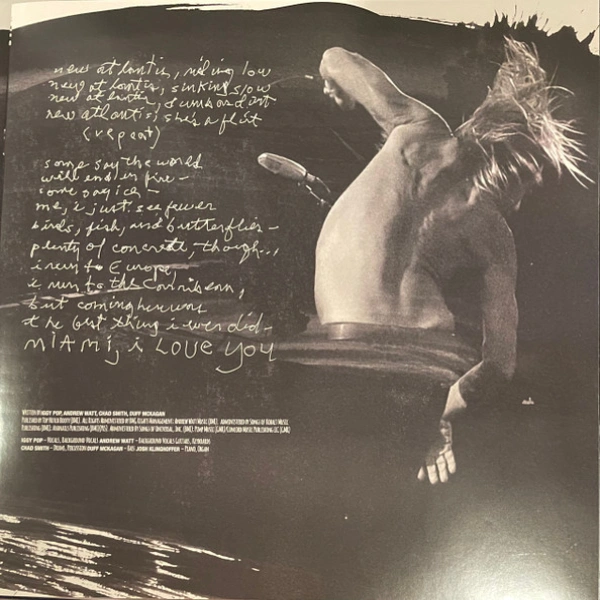 new atlantis, riding low
new atlantis, sinking slow
new atlantis, dumb and
new atlantis, she's a flirt
(repeat)
some say the world
will end in fire –
some say ice –
me, i just see fewer
birds, fish, and butterflies –
plenty of concrete, though...
i run to Europe,
i run to the Carribean,
but coming here was
the best thing i ever did –
MIAMI, i LOVE YOU
WRITTEN BY IGGY POP, ANDREW WATT, CHAD SMITH, DUFF MCKAGAN
IGGY POP – VOCALS, BACKGROUND VOCALS ANDREW WATT – BACKGROUND VOCALS GUITARS, KEYBOARDS
CHAD SMITH – DRUMS, PERCUSSION DUFF MCKAGAN – BASS JOSH KLINGHOFFER – PIANO, ORGAN